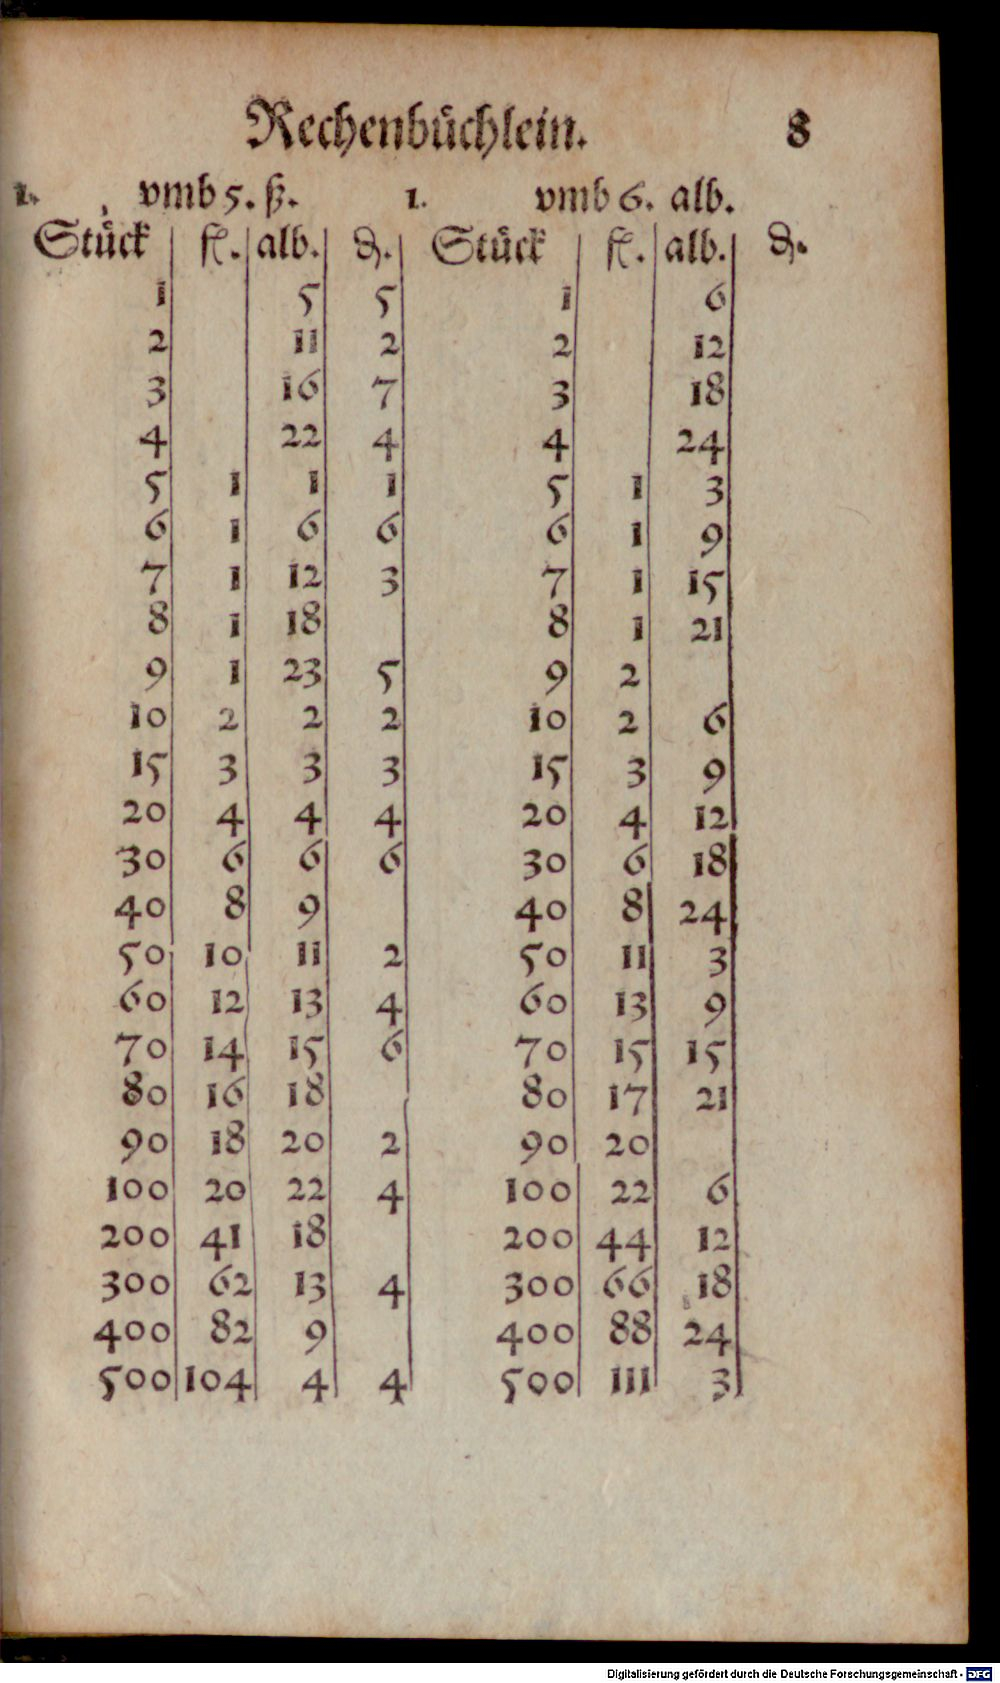 Rechenbüchlein. 8
1. vmb 5. ß. 1. vmb 6. alb.
Stück fl. alb. ₰. Stück fl. alb. ₰.
1 5 5 1 6
2 11 2 2 12
3 16 7 3 18
4 22 4 4 24
5 1 1 1 5 1 3
6 1 6 6 6 1 9
7 1 12 3 7 1 15
8 1 18 8 1 21
9 1 23 5 9 2
10 2 2 2 10 2 6
15 3 3 3 15 3 9
20 4 4 4 20 4 12
30 6 6 6 30 6 18
40 8 9 40 8 24
50 10 11 2 50 11 3
60 12 13 4 60 13 9
70 14 15 6 70 15 15
80 16 18 80 17 21
90 18 20 2 90 20
100 20 22 4 100 22 6
200 41 18 200 44 12
300 62 13 4 300 66 18
400 82 9 400 88 24
500 104 4 4 500 111 3
Digitalisierung gefördert durch die Deutsche Forschungsgemeinschaft - DFG